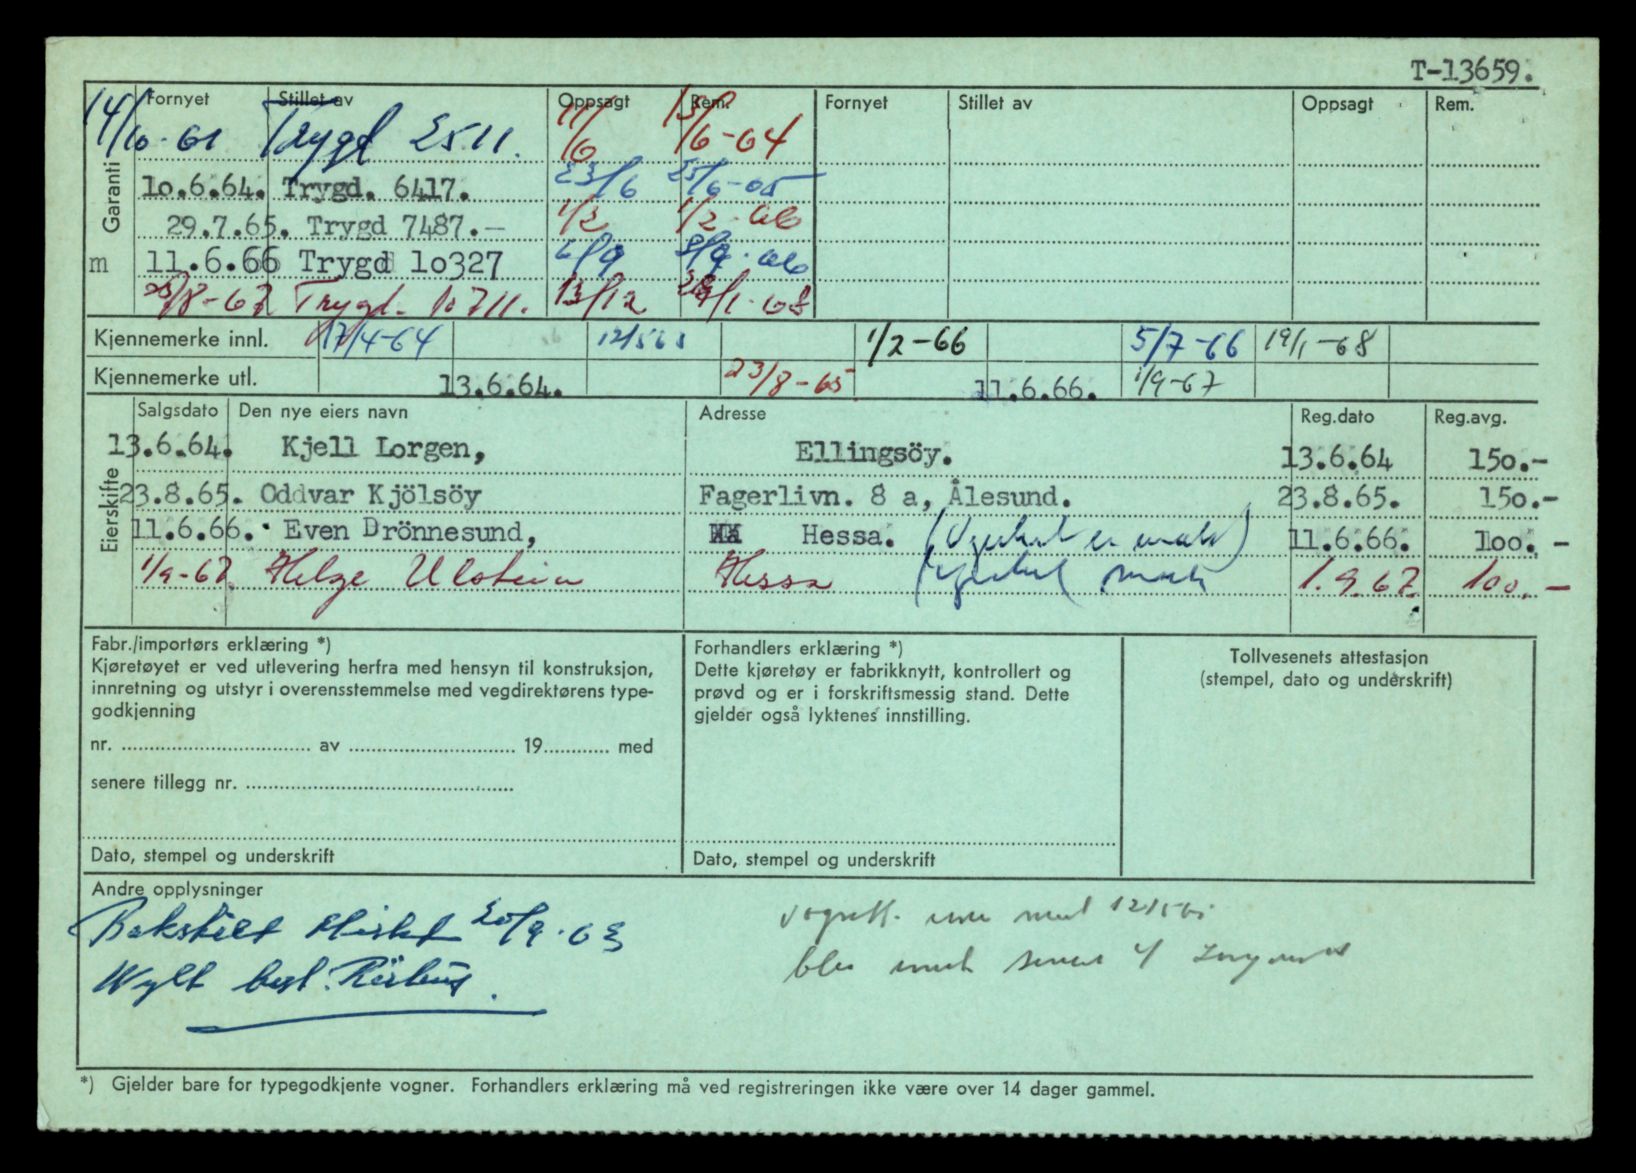 T-13659.
Fornyet Stillet av Oppsagt Rem. Fornyet Stillet av Oppsagt Rem.
14/10-61 Trygd 2511. 11/6 13/6-64
Garanti
10.6.64. Trygd. 6417. 23/6 25/6-65
29.7.65. Trygd 7487.- 1/2 1/2-66
m 11.6.66 Trygd 10327 6/9 8/9-66
23/8-67 Trygd. 10711. 13/12 /1-68
Kjennemerke innl. 17/4-64 12/5 65 1/2-66 5/7-66 19/1-68
Kjennemerke utl. 13.6.64. 23/8-65 11.6.66. 1/9-67
Eierskifte
Salgsdato Den nye eiers navn Adresse Reg.dato Reg.avg.
13.6.64. Kjell Lorgen, Ellingsöy. 13.6.64 150.-
23.8.65. Oddvar Kjölsöy Fagerlivn. 8 a, Ålesund. 23.8.65. 150.-
11.6.66. Even Drönnesund, Hessa. 11.6.66. 100.-
1/9-67 Helge Ulstein Hessa 1.9.67 100.-
Fabr./importørs erklæring *)
Kjøretøyet er ved utlevering herfra med hensyn til konstruksjon,
innretning og utstyr i overensstemmelse med vegdirektørens type-
godkjenning
nr. av 19 med
senere tillegg nr.
Dato, stempel og underskrift
Forhandlers erklæring *)
Dette kjøretøy er fabrikknytt, kontrollert og
prøvd og er i forskriftsmessig stand. Dette
gjelder også lyktenes innstilling.
Dato, stempel og underskrift
Tollvesenets attestasjon
(stempel, dato og underskrift)
Andre opplysninger
*) Gjelder bare for typegodkjente vogner. Forhandlers erklæring må ved registreringen ikke være over 14 dager gammel.